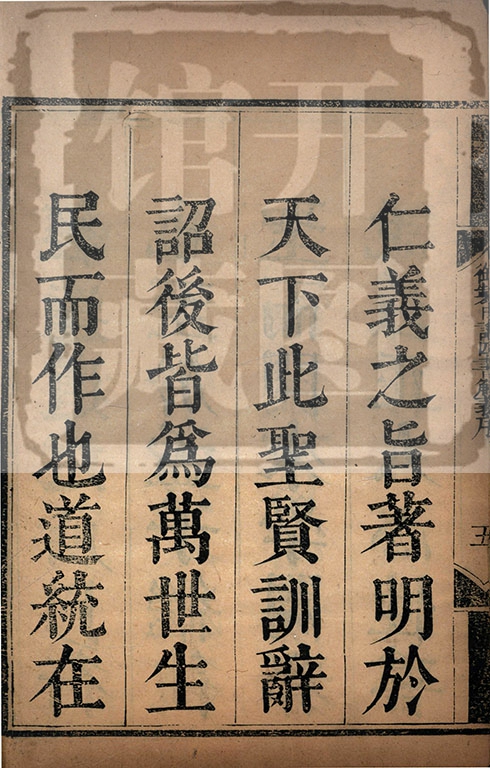 仁義之旨著明於
天下此聖賢訓辭
詔後皆爲萬世生
民而作也道統在
五
开图馆藏